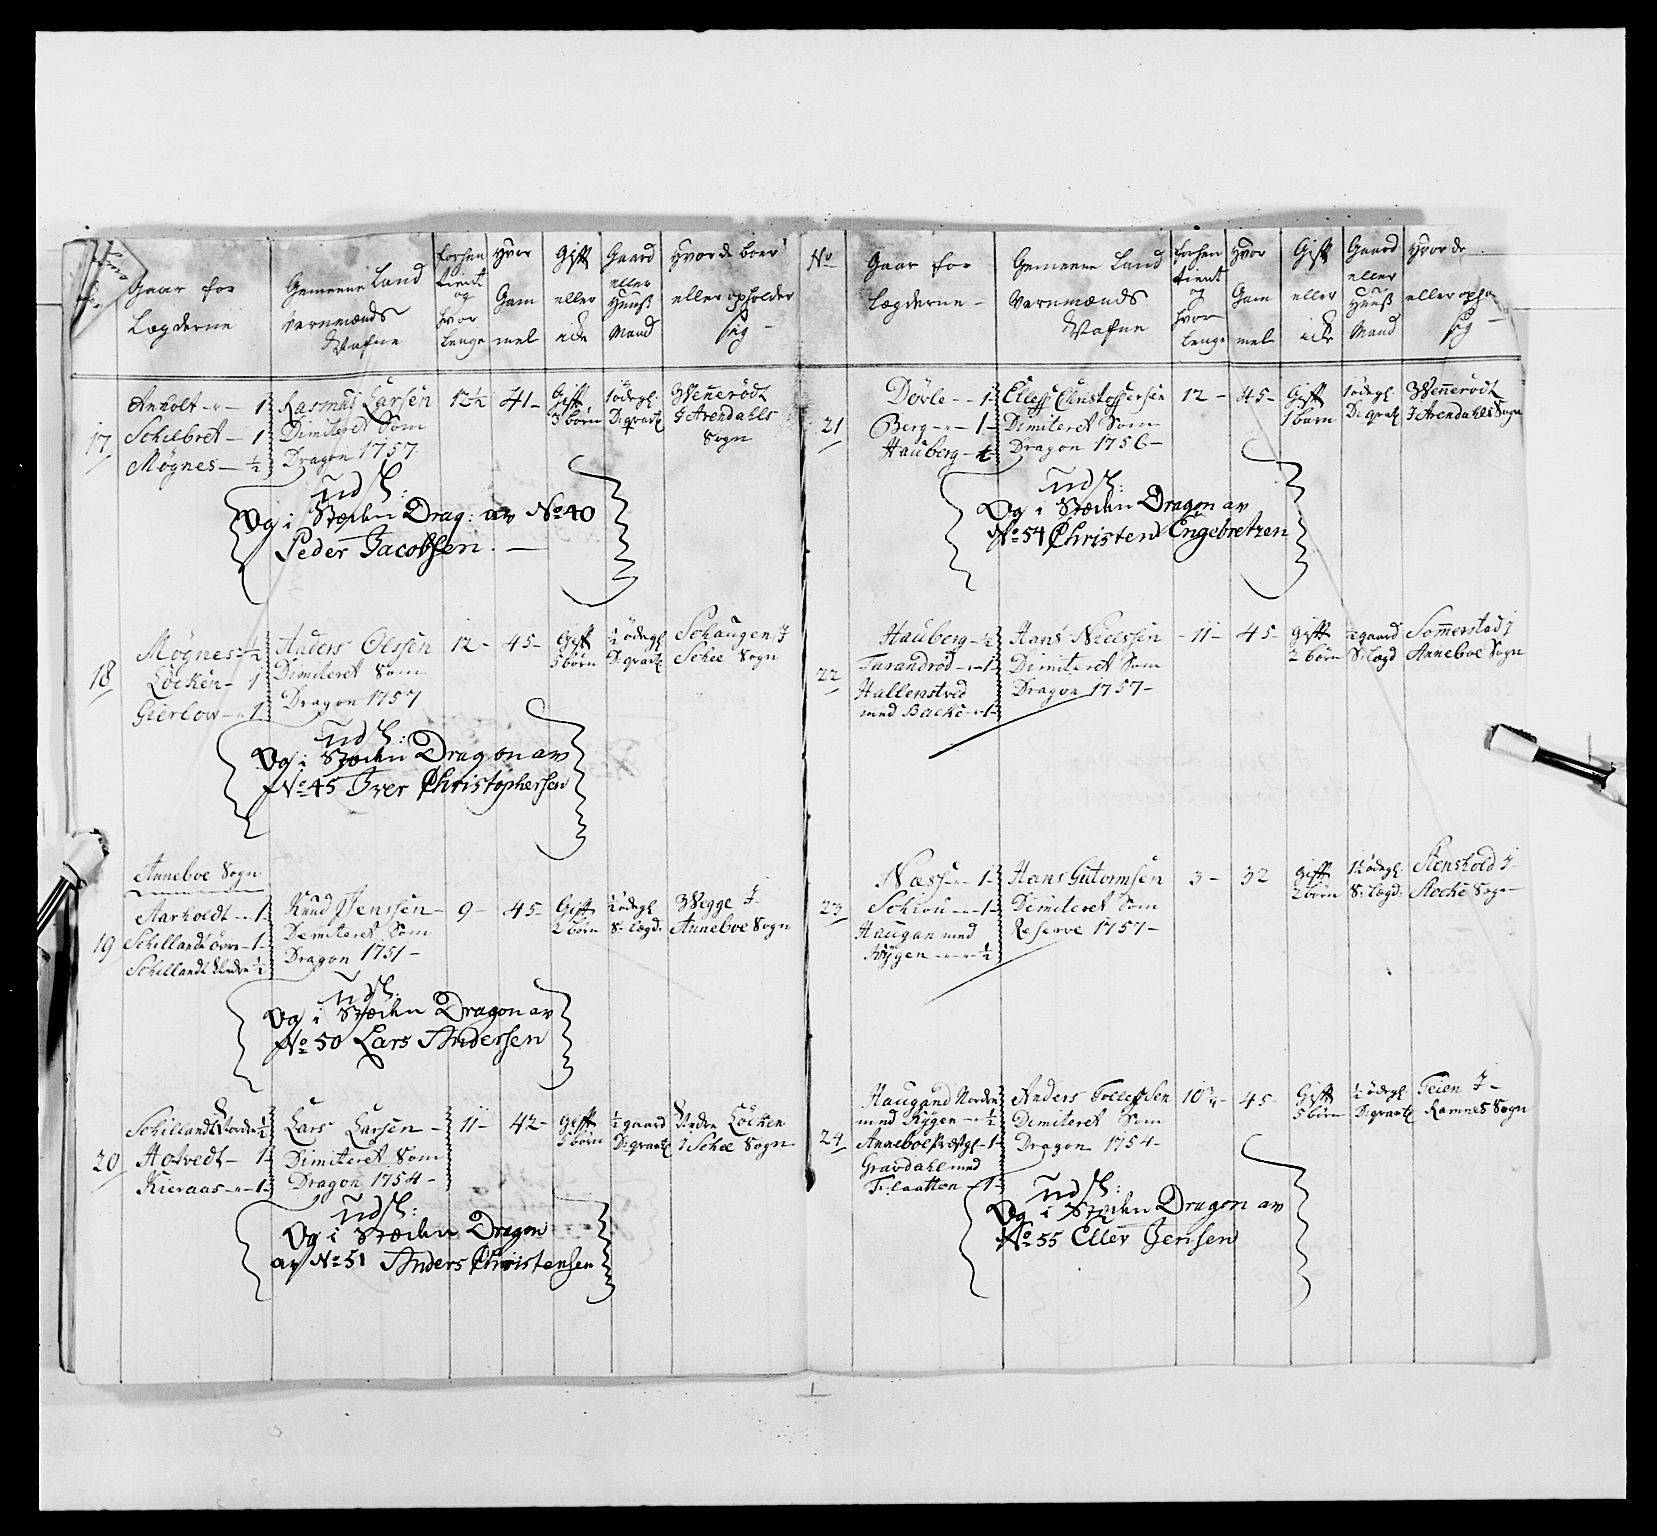 Gaar for
Lægderne
Gemeene Land
værnmænds
Nafne
forhen
tient
og
hvor
lenge
Hvor
Gam
mel
Gift
eller
icke
Gaard
eller
Huuß
Mand
Hvor de boer
eller opholder
sig
17
Anholt - 1
Schelbret - 1
Møgnes - ½
Rasmus Larsen
Dimiteret Som
Dragon 1757
12½
41-
Gift
3 børn
1 ødegl
D: qvart
Wennerødt
J Arendahls
Sogn
Udsk:
Og i Stæden Drag: av No 40
Peder Jacobsen.
18
Møgnes - ½
Løcken - 1
Gierlow - 1
Anders Olssen
Dimiteret Som
Dragon 1757
12-
45-
Gift
5 børn
½ ødegl
D: qvart
Schaugen J
Schee Sogn
Udsk:
Og i Stæden Dragon av
No 45 Iver Christophersen
Anneboe Sogn
19
Aarholdt - 1
Schillandt øvre - 1
Schillandt Nedre ½
Knud Jenssen-
Demiteret Som
Dragon 1751-
9-
45-
Gift
2 børn
½ ødegl
S: Lægd.
Wegge J-
Anneboe Sogn
Udsk:
Og i Stæden Dragon av
No 50 Lars Andersen
20
Schillandt Nordre ½
Hotvedt - 1
Kieraas - 1
Lars Larsen-
Dimiteret Som
Dragon 1754-
11-
42-
Gift
5 børn
½ gaard
D: qvart
Nedre Løcken
J Schee Sogn
Udsk:
Og i Stæden Dragon
av No 51 Anders Christensen
No
Gaar for
Lægderne -
Gemeene Land
Værnmænds
Nafne
forhen
tient
og
hvor
lenge
Hvor
Gam
mel
Gift
eller
icke
Gaard
eller
Huuß
Mand
Hvor de
eller opho
sig
21
Døvle - 1
Berg - 1
Hauberg - ½
Elleff Christoffersen
Dimiteret Som
Dragon 1756-
12-
45-
Gift
1 barn
1 ødegl
D: qvart
Wennerødt
J Arendahls Sogn
Udsk:
Og i Stæden Dragon av
No 54 Christen Engebretzen
22
Hauberg - ½
Tarandrød - 1
Hallenstved
med Backe - 1
Hans Nielssen
Dimiteret Som
Dragon 1757-
-11-
45-
Gift
2 børn
gaard
S: Lægd
Sommerstad J
Anneboe Sogn
23
Næss - 1
Schiou - 1
Haugan med
Rygen - ½
Hans Gutormsen
Dimiteret Som
Reserve 1757-
3-
32
Gift
2 børn
1½ ødegl.
S: Lægd.
Stenshold J-
Stocke Sogn
24
Haugand Nordre
med Rygen - ½
Anneboe Præstgl - 1
Gravdahl med
Flaatten - 1
Anders Tollefsen
Dimiteret Som
Dragon 1754-
10¾-
45-
Gift
5 børn
½ ødegl
D: qvart
Feien J-
Ramnes Sogn
Udsk:
Og i Stæden Dragon av
No 55 Ellev Jensen